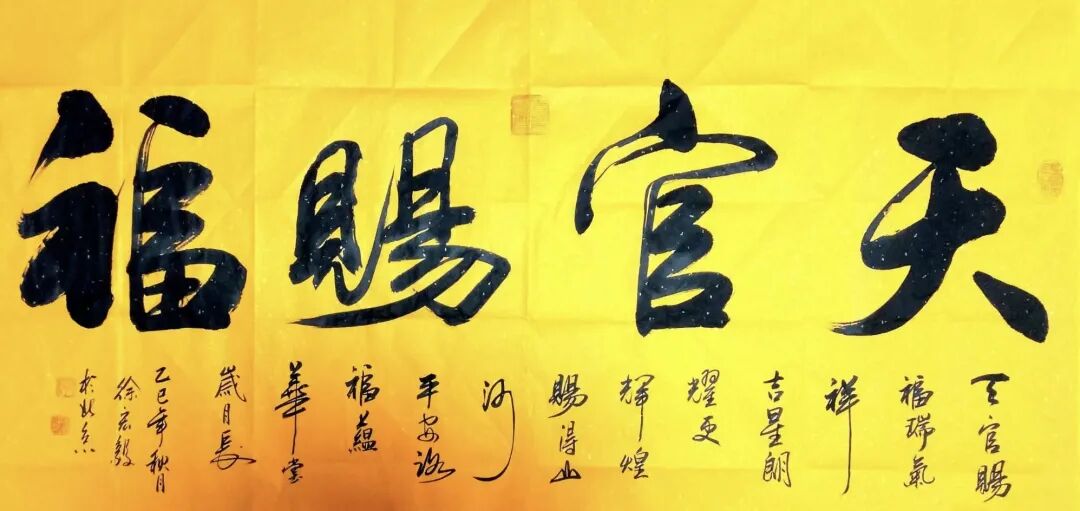 天官賜福
天官賜
福瑞氣
祥
吉星朗
耀更
輝煌
賜得山
河
平安路
福蘊
華堂
歲月長
乙巳年秋月
徐宏毅
於北京